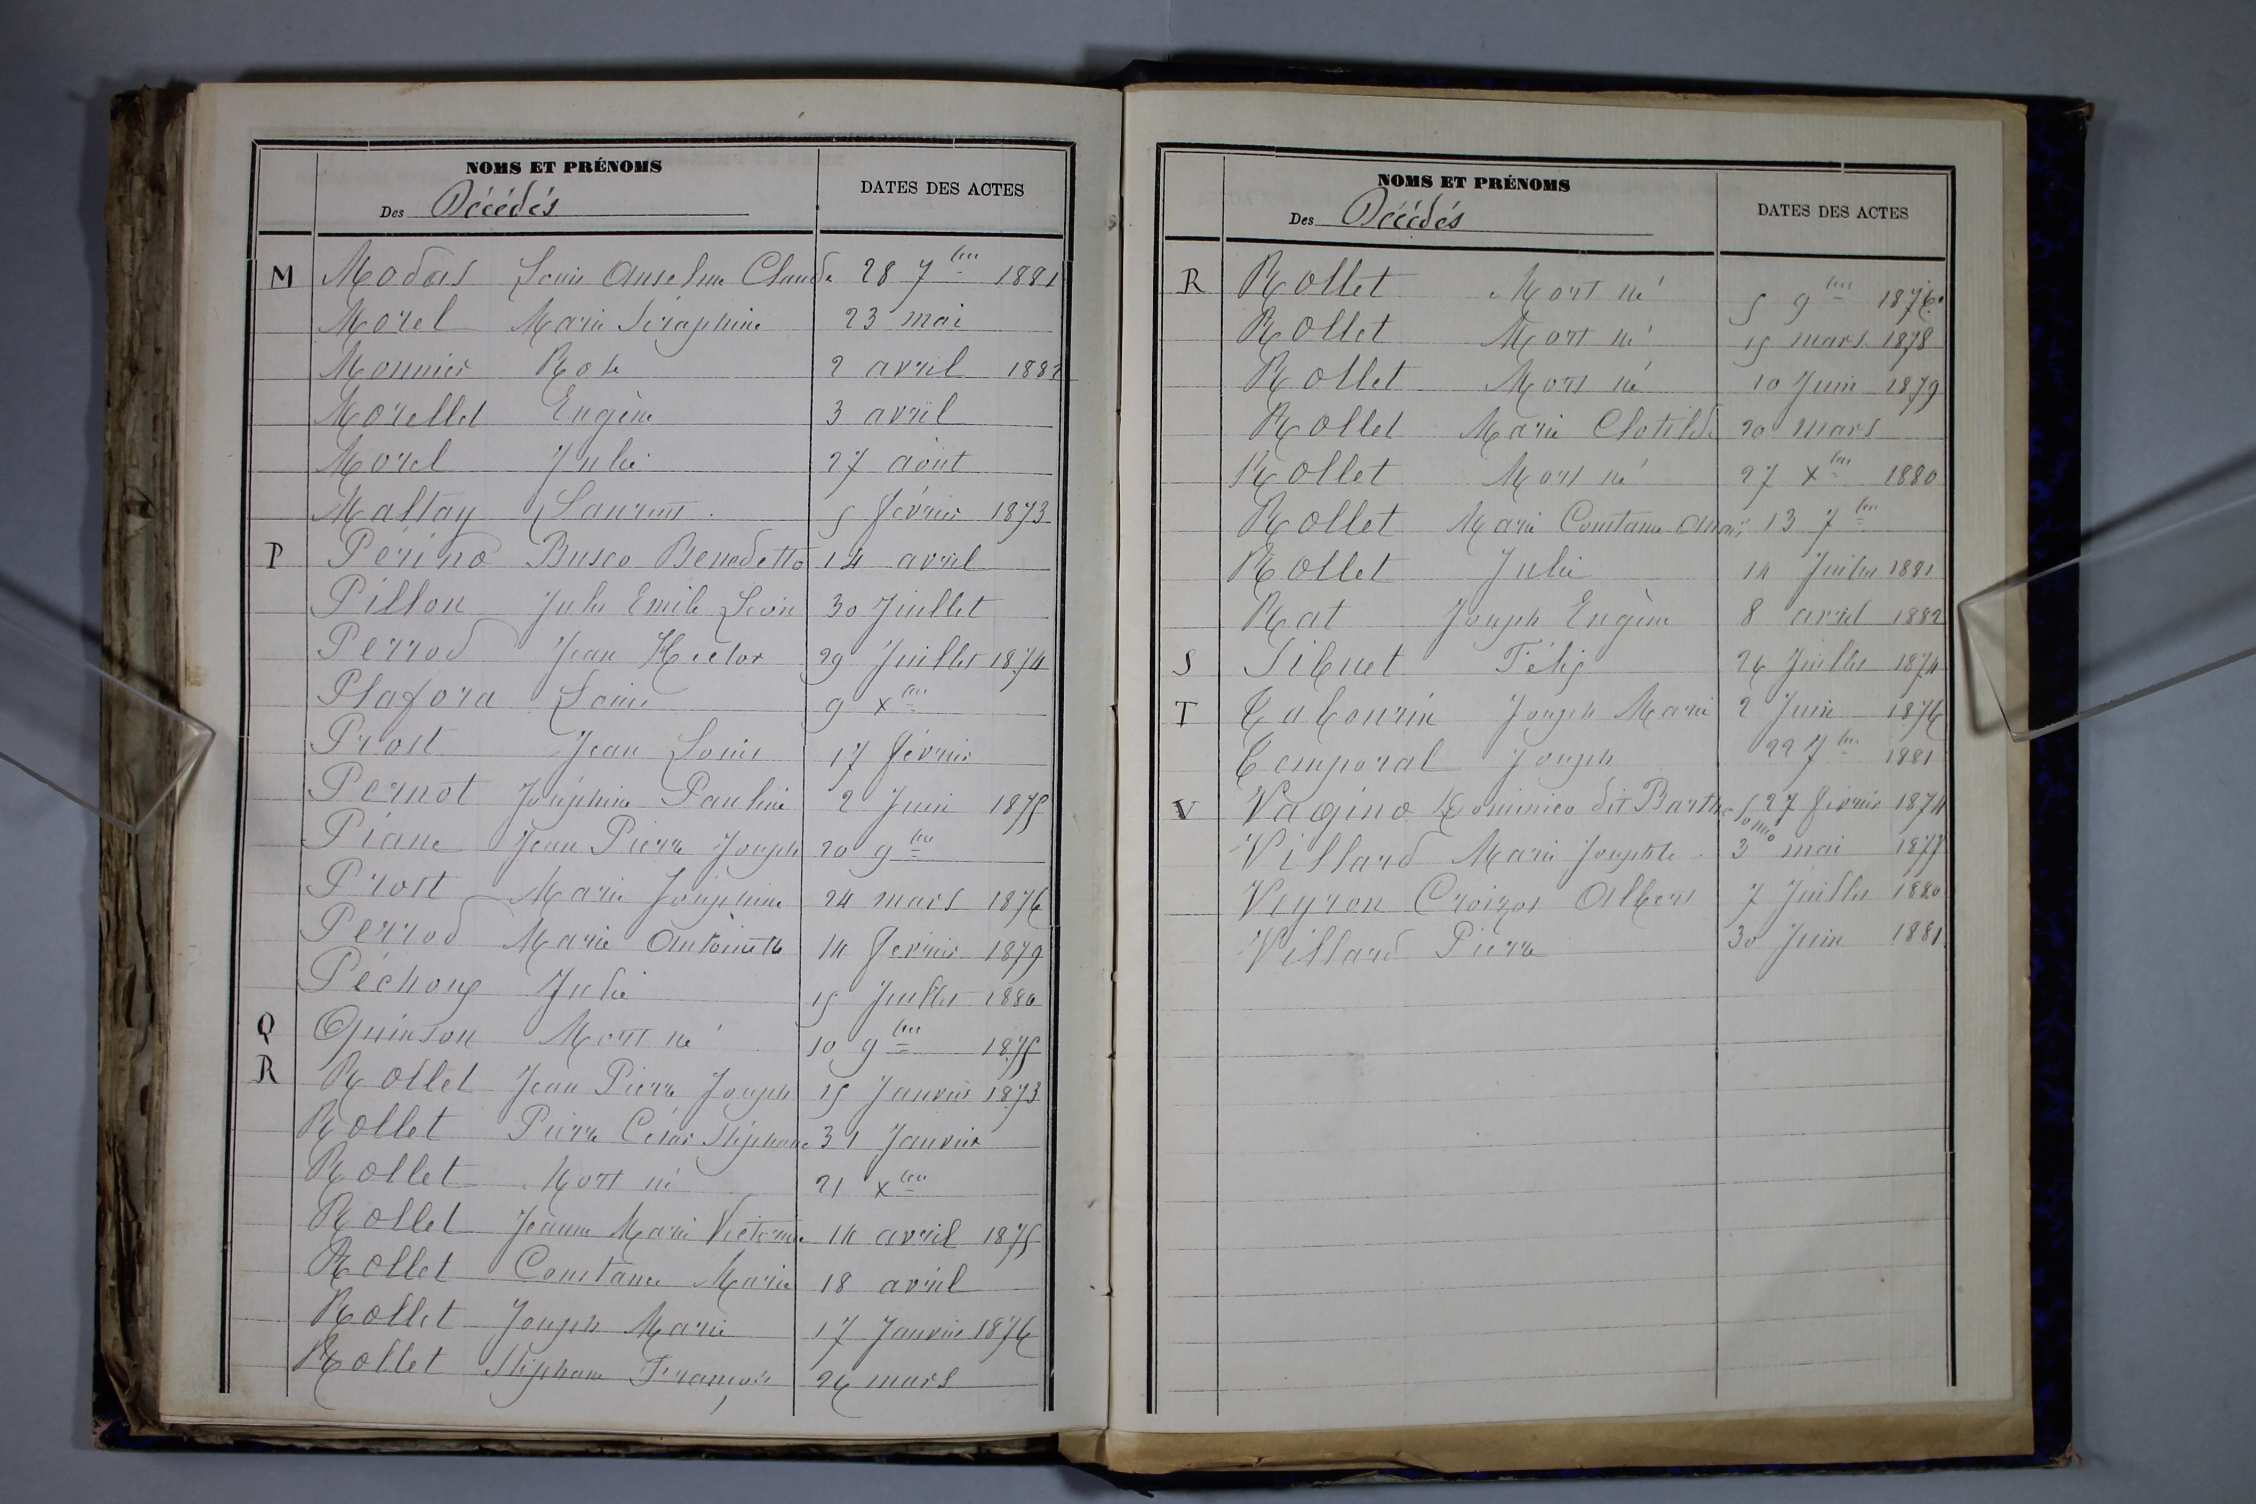 NOMS ET PRÉNOMS
Des Décédés
DATES DES ACTES
M Modas Louis Anselme Claude 28 7bre 1881
Morel Marie Séraphine 23 mai
Monnier Rose 2 avril 1882
Morellet Eugène 3 avril
Morel Julie 27 août
Maltay Laurent 5 février 1873
P Périno Busco Benedetto 14 avril
Pillon Jules Emile Louis 30 Juillet
Perrod Jean Hector 29 Juillet 1874
Plafora Louis 9 xbre
Prost Jean Louis 17 février
Pernot Joséphine Pauline 2 Juin 1875
Piane Jean Pierre Joseph 20 9bre
Prost Marie Joséphine 24 mars 1876
Perrod Marie Antoinette 14 février 1879
Péchoux Julie 15 Juillet 1880
Q Quinson Mort né 10 9bre 1875
R Rollet Jean Pierre Joseph 15 Janvier 1873
Rollet Pierre César Stéphane 31 Janvier
Rollet Mort né 21 xbre
Rollet Jeanne Marie Victorine 14 avril 1875
Rollet Constance Marie 18 avril
Rollet Joseph Marie 17 Janvier 1876
Rollet Stéphane François 26 mars
NOMS ET PRÉNOMS
Des Décédés
DATES DES ACTES
R Rollet Mort né 5 9bre 1876
Rollet Mort né 15 mars 1878
Rollet Mort né 10 Juin 1879
Rollet Marie Clotilde 20 mars
Rollet Mort né 27 xbre 1880
Rollet Marie Constance 13 7bre
Rollet Julie 14 Juillet 1881
Rat Joseph Eugène 8 avril 1882
S Sibuet Félix 26 Juillet 1874
T Tabourin Joseph Marie 2 Juin 1876
Temporal Joseph 22 7bre 1881
V Vagino Dominico dit Bartho 27 février 1874
lomeo
Villard Marie Josephte 3 mai 1877
Veyron Croizas Albert 7 Juillet 1880
Villard Pierre 30 Juin 1881